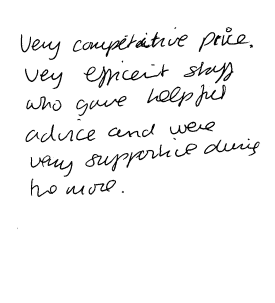 Very competitive price.
Very efficient staff
who gave helpful
advice and were
very supportive during
the move.